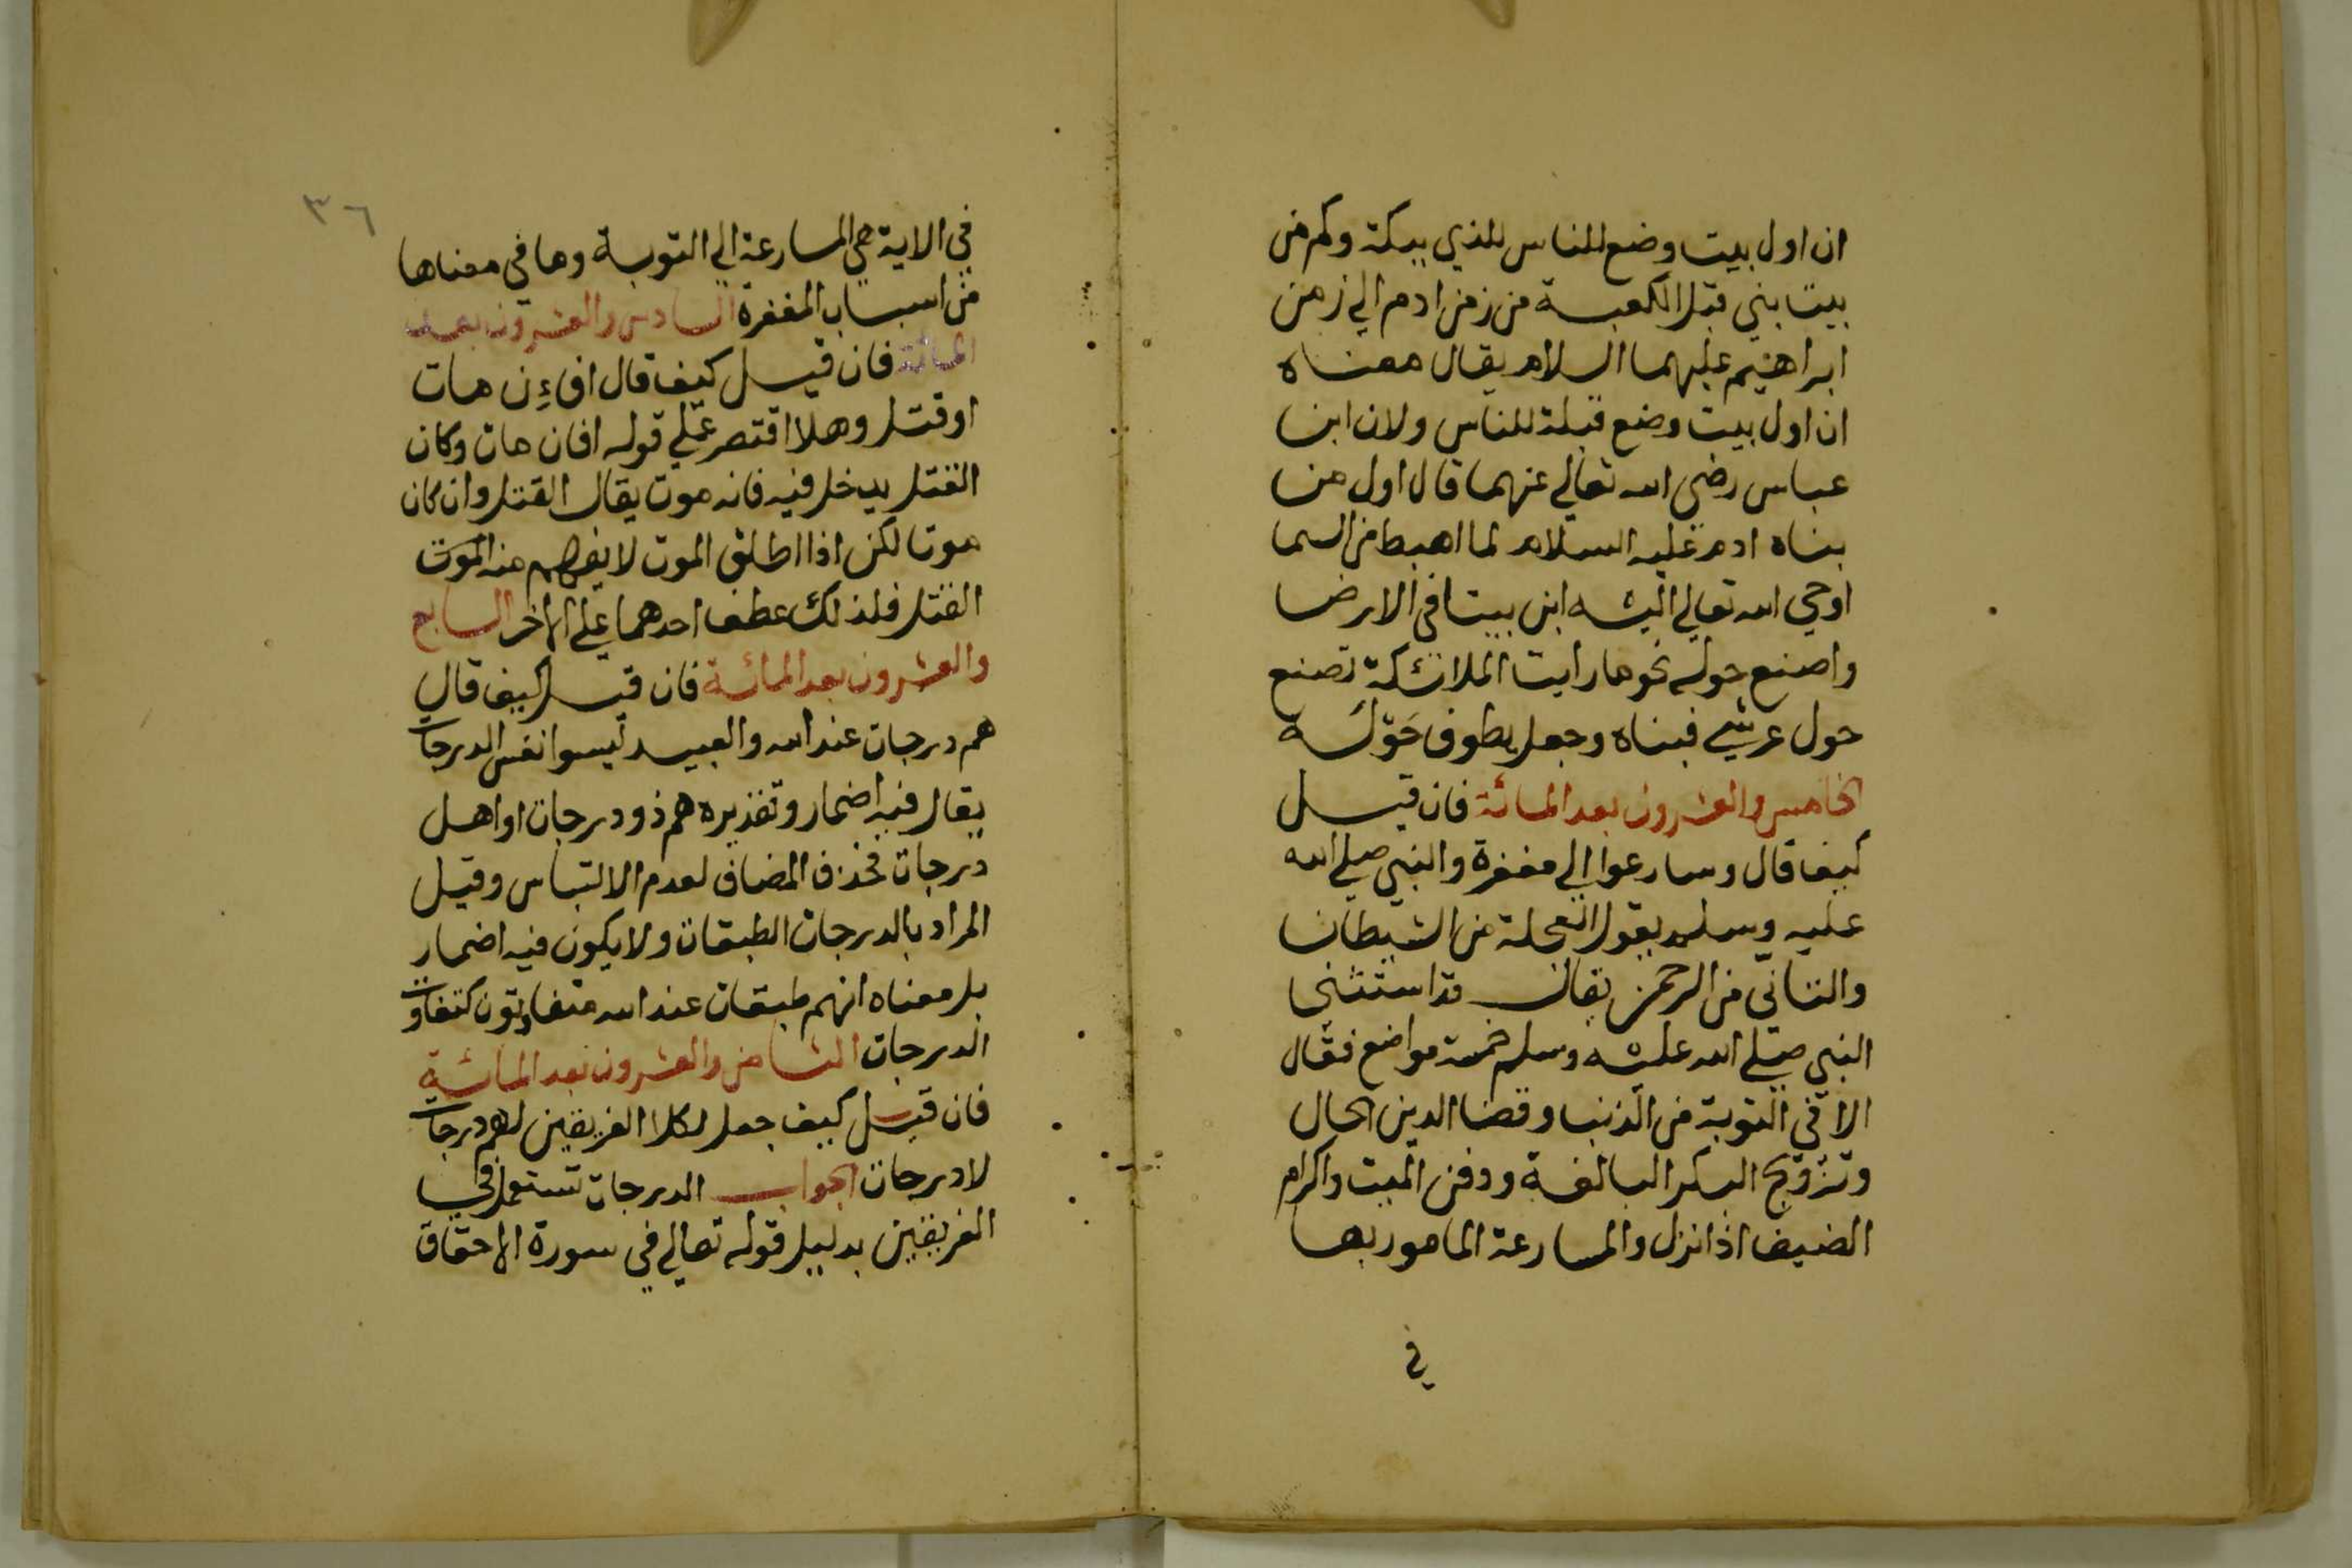 ان اول بيت وضع للناس للذي ببكة وكم من
بيت بني قبل الكعبة من زمن ادم الي زمن
ابراهيم عليهما السلام يقال معناه
ان اول بيت وضع قبلة للناس ولان ابن
عباس رضي الله تعالي عنهما قال اول من
بناه ادم عليه السلام لما اهبط من السما
اوحي الله تعالي اليه ابن بيتا في الارض
واصنع حوله نحو ما رايت الملائكة تصنع
حول عرشي فبناه وجعل يطوف حَوْلَه
الخامس والعشرون بعد المائة فان قيل
كيف قال وسارعوا الي مغفرة والنبي صلي الله
عليه وسلم يقول العجلة من الشيطان
والتاني من الرحمن يقال قد استثني
النبي صلي الله عليه وسلم خمسة مواضع فقال
الا في التوبة من الذنب وقضا الدين الحال
وتزويج البكر البالغة ودفن الميت واكرام
الضيف اذا نزل والمسارعة المامور بها
في
٣٦
في الاية هي المسارعة الي التوبة وما في معناها
من اسباب المغفرة السادس والعشرون بعد
المائة فان قيل كيف قال افاءِن مات
او قتل وهلا اقتصر علي قوله افان مات وكان
القتل يدخل فيه فانه موت يقال القتل وان كان
موتا لكن اذا اطلق الموت لا يفهم منه الموت
القتل فلذلك عطف احدهما علي الاخر السابع
والعشرون بعد المائة فان قيل كيف قال
هم درجات عند الله والعبيد ليسوا نفس الدرجات
يقال فيه اضمار وتقديره هم ذوو درجات او اهل
درجات فحذف المضاف لعدم الالتباس وقيل
المراد بالدرجات الطبقات ولا يكون فيه اضمار
بل معناه انهم طبقات عند الله متفاوتون كتفاوت
الدرجات الثامن والعشرون بعد المائة
فان قيل كيف جعل لكلا الفريقين لهم درجات
لا درجات الجواب الدرجات تستعمل في
الفريقين بدليل قوله تعالي في سورة الاحقاق